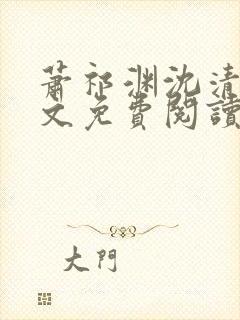 萧祁渊沈清
文免费阅读
大门